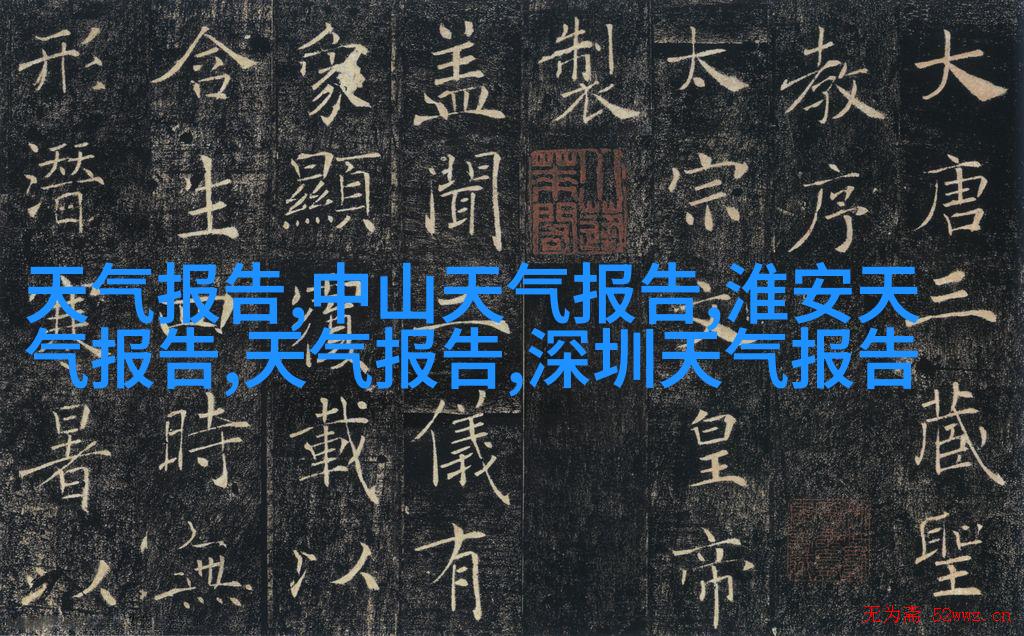 大唐三藏聖
教序
太宗文皇帝
製
盖聞二儀有
象顯覆載以
含生四時無
形潛寒暑以
天气报告,中山天气报告,淮安天
气报告,天气报告,深圳天气报告
无为斋 52wwz.cn